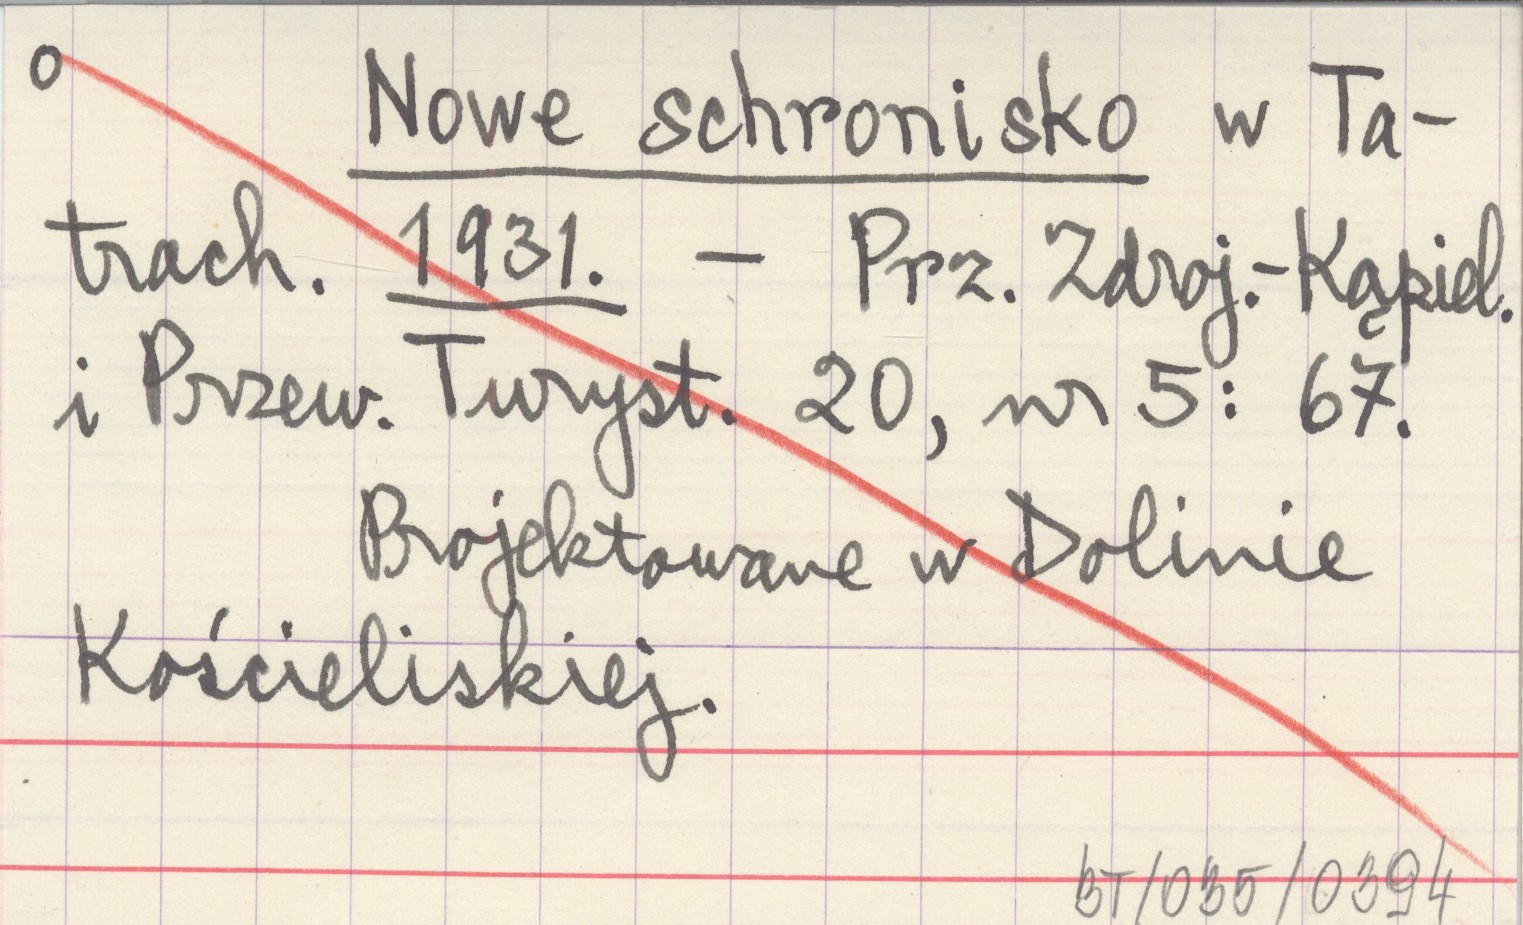 o Nowe schronisko w Ta-
trach. 1931. – Prz. Zdroj.-Kąpiel.
i Przew. Turyst. 20, nr 5: 67.
Projektowane w Dolinie
Kościeliskiej.
BT/035/0394